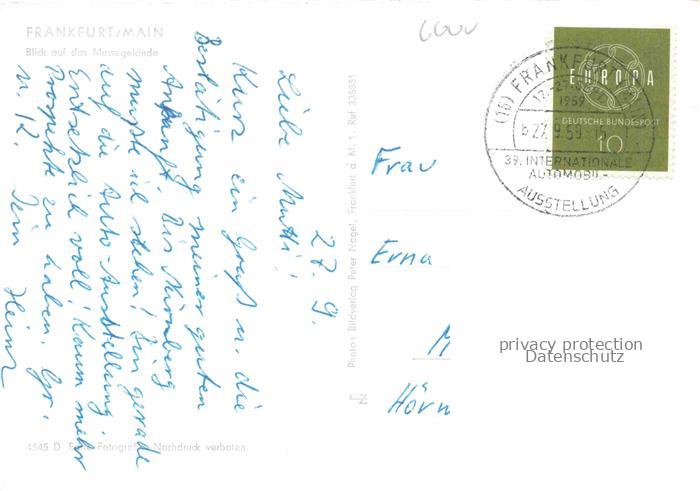 FRANKFURT/MAIN
Blick auf das Messegelände
27. 9.
Liebe Mutti!
Kurz ein Gruß u. die
Bestätigung meiner guten
Ankunft. Bis Nürnberg
mußte ich stehen! Bin gerade
auf die Auto-Ausstellung.
Entsetzlich voll! Kaum mehr
Prospekte zu haben. Gr.
Dein Heinz
4545 D Echte Fotografie Nachdruck verboten.
Photo: Bildverlag Peter Nagel, Frankfurt a. M. 1. Ruf 335681
EUROPA
DEUTSCHE BUNDESPOST
10
(16) FRANKFURT
1959
27.9.59
39. INTERNATIONALE
AUTOMOBIL-
AUSSTELLUNG
Frau
Erna
M
Hörn
privacy protection
Datenschutz